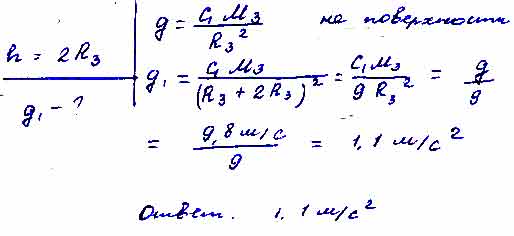 h = 2R₃
g₁ - ?
g = G M₃ / R₃² на поверхности
g₁ = G M₃ / (R₃ + 2R₃)² = G M₃ / 9 R₃² = g / 9
= 9,8 м/с / 9 = 1,1 м/с²
Ответ. 1,1 м/с²